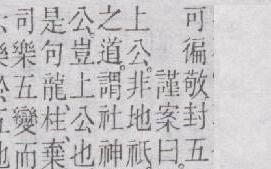 可徧敬封五
謹案曰
上公。非地祇
之道。謂社神
公。豈上公也
是句龍柱棄
司樂五變而